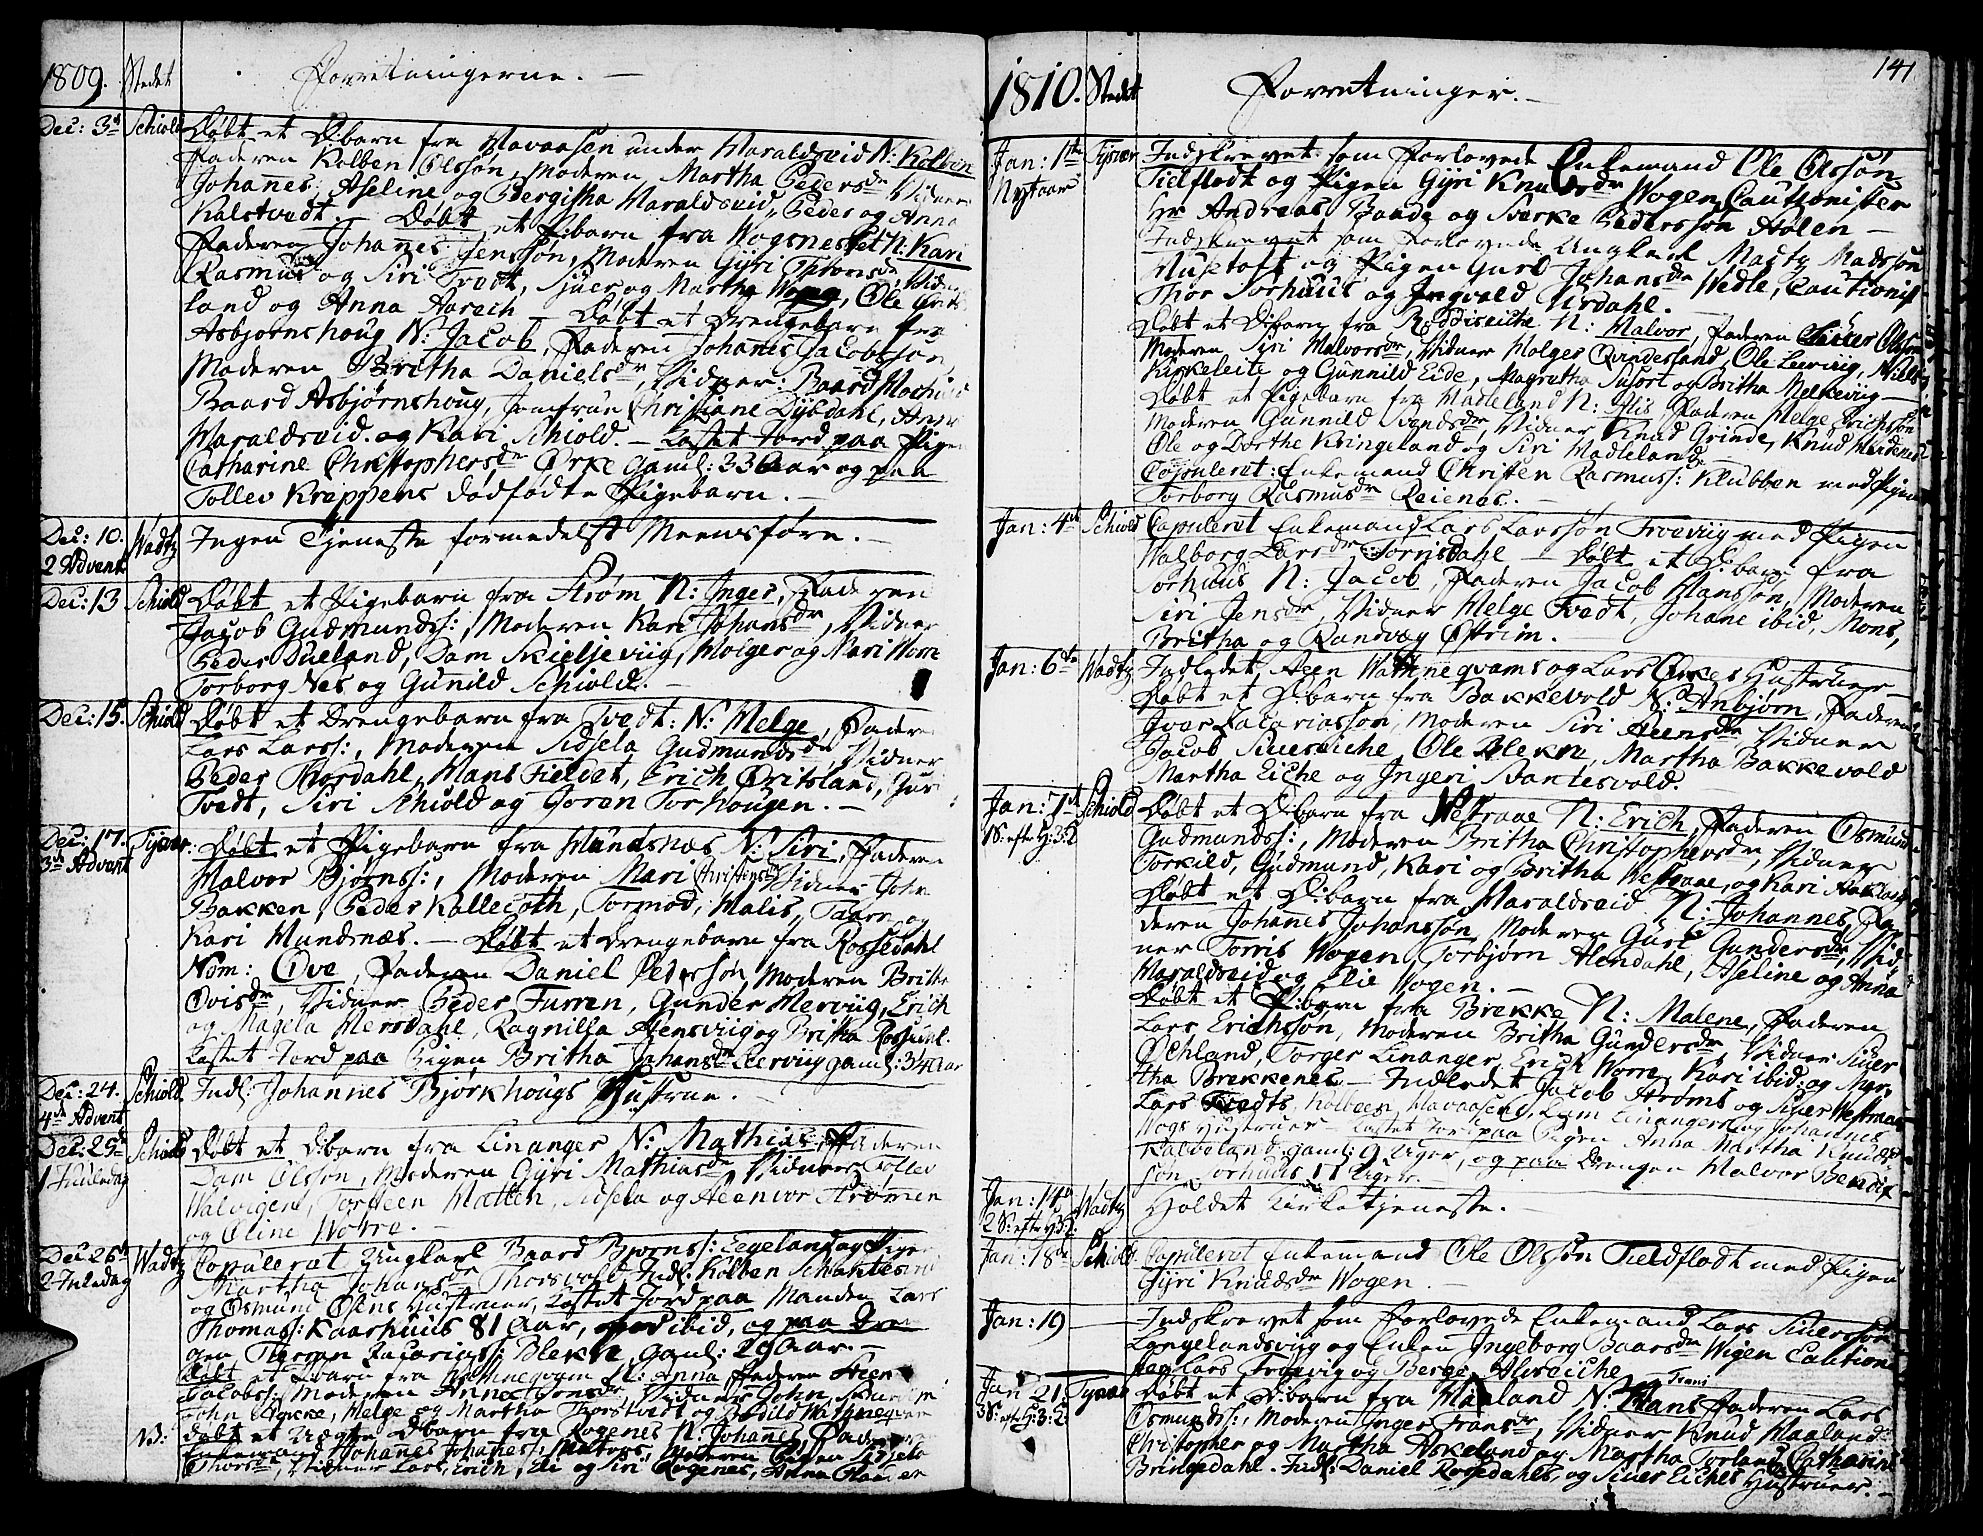 1809. Stedet Forretningerne. —
Dec: 3d Schiold Døbt et D:barn fra Havaasen under Haraldseid N: Kolben
Faderen Kolben Olssøn, Moderen Martha Peders dr Vidner
Johannes, Aseline og Bergitha Haraldseid, Peder og Anna
Kalstvedt. — Døbt et P:barn fra Wogsneset N: Kari
Faderen Johannes Jenssøn, Moderen Gÿri Thores dr Vidner
Rasmus og Siri Tvedt, Sjuer og Martha Wogs, Ole
land og Anna Aarech — Døbt et Drengebarn fra
Asbjørnshoug N: Jacob, Faderen Johannes Jacobssøn,
Moderen Britha Daniels dr, Vidner: Baard
Baard Asbjørnshoug, Jomfrue Christiane Dybdahl, Anne
Haraldseid og Kari Schiold. — Kastet Jord paa Pigen
Catharine Christophers dr Ørke gaml: 33 Aar og paa
Tollev Kroppens dødfødte Pigebarn. —
Dec: 10. Wadtz Ingen Tjeneste formedelst Meensføre. —
2 Advent
Dec: 13 Schiold Døbt et Pigebarn fra Strøm N: Inger, Faderen
Jacob Gudmundss:, Moderen Kari Johans dr, Vidner
Peder Dueland, Dam Skieljeviig, Holger og Mari Worre
Torborg Nes og Gunnild Schiold. —
Dec: 15. Schiold Døbt et Drengebarn fra Tvedt: N: Helge, Fader
Lars Larss:, Moderen Sidsela Gudmunds dr, Vidner
Peder Thordahl, Hans Fieldet, Erich Øritsland, Guri
Tvedt, Siri Schiold og Goron Torhougen. —
Dec: 17. Tysvær. Døbt et Pigebarn fra Hundsnæs N: Siri, Faderen
3d Advent Halvor Bjørnss:, Moderen Mari Christensdr Vidner John
Bakken, Peder Kallecoth, Tormod, Malis, Taarn og
Kari Hundsnæs. — Døbt et Drengebarn fra Rossedahl
Nom: Ove, Faderen Daniel Pederssøn, Moderen Britha
Ovis dr, Vidner Peder Furren, Gunder Herviig, Erich
og Magela Hersdahl, Ragnilla Stensviig og Britha Rossedl.
Kastet Jord paa Pigen Britha Johans dr Leerviig gaml: 34 Aar
Dec: 24. Schiold Indl: Johannes Bjørkhougs Hustrue. —
4de Advent
Dec: 25d Schiold Døbt et D:barn fra Linanger N: Mathias, Faderen
1 Juuledag Dam Olssøn, Moderen Gÿri Mathias dr Vidner Tollev
Walvigen, Torsteen Hatten, Sidsela og Steenvor Strømen
og Oline Worre. —
Dec: 26d Wadtz Copuleret Ungkarl Baard Bjørnss: Eegeland og Pigen
2 Juledag Martha Johans dr Thorsvold, Indl: Kolben
og Osmund Østens Hustruer, Kastet Jord paa Manden Lars
Thomass: Kaarhuus 81 Aar, ibid, og paa Dren
gen Zacariass: Blekn gaml: 29 Aar. —
Døbt et P:barn fra Wathneqvam N: Anna Faderen Steen
Jacobs: Moderen Anna dr Vidner John,
John Helge og Martha Thorstvedt og Bodild Wathneqvam
N: Døbt et Uægte D:barn fra Røgenes N: Johanes Fader
Enkemand Johanes Johaness: Moderen Pigen Sidsela
Thors dr, Vidner Lars, Erich, Eli og Siri Røgenes, Anna
1810. Stedet Forretninger. — 141
Jan: 1te Tysvær Indskrevet som Forlovede Enkemand Ole Olssøn
Nytaar Tielflodt og Pigen Gÿri Knuds dr Wogen, Cautionister
Hr Andreas Baade og Sverke Pederssøn Hølen —
Indskrevet som Forlovede Ungkarl Madtz Madssøn
og Pigen Guri Johans dr Wedle, Cautionist
Thor Sørhuus og Ingvald Urdahl.
Døbt et D:barn fra N: Halvor, Faderen Siuer Olssøn
Moderen Siri Halvors dr, Vidner Holger Qvindesland, Ole Leerviig, Nills
Kirkeleite og Gunnild Eide, Magretha Susort og Britha Melkeviig —
Døbt et Pigebarn fra Hadteland N: Elis Faderen Helge Erichssøn
Moderen Gunnild Svends dr, Vidner Knud Grinde, Knud
Ole og Dorthe Kringeland og Siri Hadteland
Copuleret: Enkemand Christen Rasmuss: Klubben med Pigen
Torborg Rasmus dr Reienes. —
Jan: 4d Schiold Copuleret Enkemand Lars Larssøn Troeviig med Pigen
Walborg Lars dr Tornsdahl — Døbt et D:barn fra
Torhuus N: Jacob, Faderen Jacob Hanssøn, Moderen
Siri Jens dr, Vidner Helge Tvedt, Johane ibid, Mons,
Britha og Randvæg Østrim. —
Jan: 6te Wadtz Indledet Steen Wathneqvams og Lars Ørkes Hustruer —
Døbt et D:barn fra Bakkevold N: Anbjørn, Faderen
Iver Zacariassøn, Moderen Siri Steens dr Vidner
Jacob Siuereiche, Ole Blekn, Martha Bakkevold
Martha Eiche og Ingeri Stantesvold.
Jan: 7d Schiold Døbt et D:barn fra Westraae N: Erich, Faderen Osmund
1S: efter H:3:K Gudmundss:, Moderen Britha Christophers dr, Vidner
Torkild, Gudmund, Kari og Britha Westraae, og Kari
Døbt et D:barn fra Haraldseid N: Johannes, Fa
deren Johanes Johanssøn, Moderen Guri Gunders dr, Vid
ner Torris Wogen, Torbjørn Alendahl, Aseline og Anna
Haraldseid og Elie Wogen. —
Døbt et P:barn fra Brekke N: Malene, Faderen
Lars Erichssøn, Moderen Britha Gunders dr, Vidner Siuer
Ochland, Torger Linanger, Erich Worre, Kari ibid: og Mar
tha Brekkenes — Indledet Jacob Strøms og Siuer Westraae
Lars Tvedts, Kolbeen Havaasens, Dam Linangers og Johannes
Wogs Hustruer — Kastet Jord paa Pigen Anna Martha Knuds
Kalveland, gaml: 9 Uger, og paa Drengen Halvor Bendix
søn Torhuus 17 Uger. —
Jan: 14d Wadtz Holdet Kirketjeneste. —
2S: efter H3K:
Jan: 18d Schiold Copuleret Enkemand Ole Olssøn Tieldflodt med Pigen
Gÿri Knuds dr Wogen. —
Jan: 19 Indskrevet som Forlovede Enkemand Lars Siuerssøn
Lengelandsviig og Enken Ingeborg Baars dr Wigen Caution
ister Lars Troeviig og Berge Alvseiche
Jan 21. Tysvær Døbt et D:barn fra Haaland N: Hans Frans Faderen Lars
3S: eft H:3:K: Osmundss:, Moderen Inger Frans dr, Vidner Knud Haaland
Christopher og Martha Askeland og Martha Torland, Catharine
Bringedahl. Indl: Daniel Rossedahls, og Siuer Eiches Hustruer. —